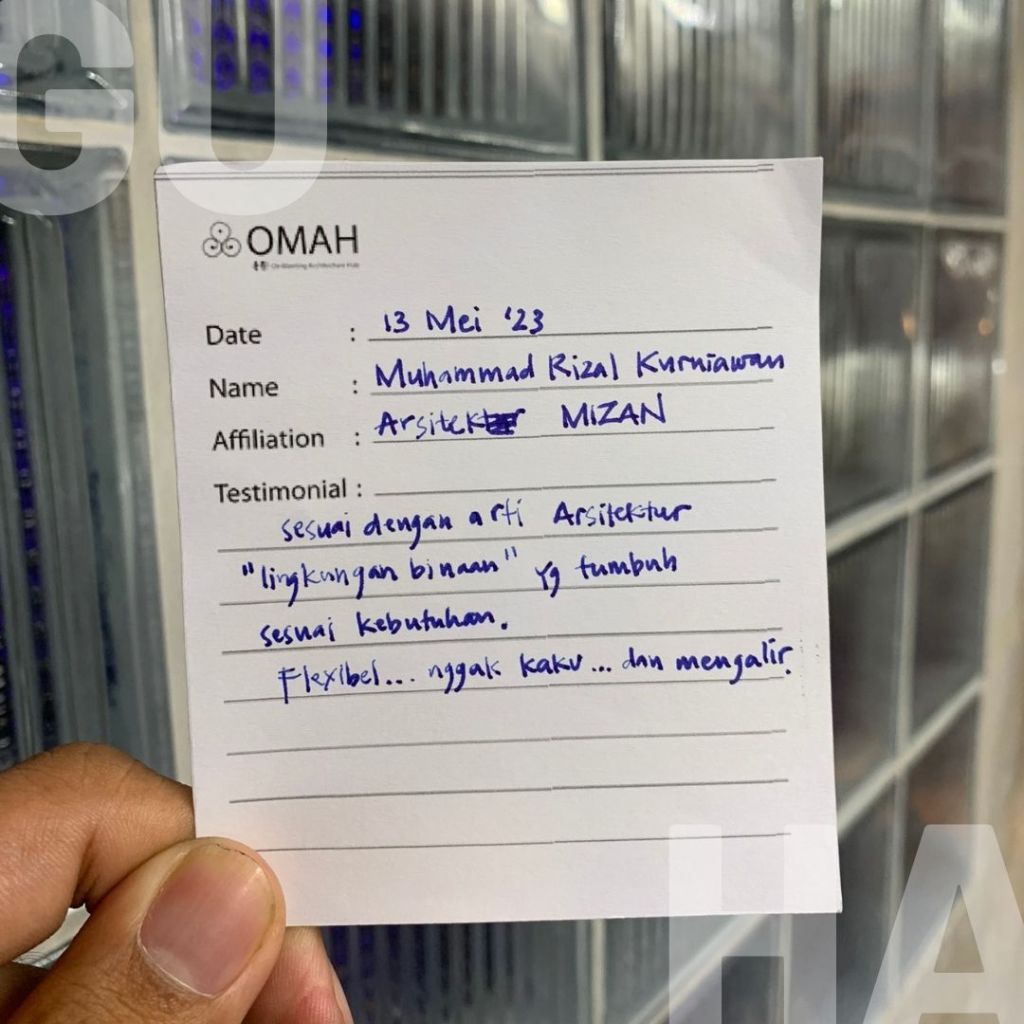 GU
OMAH
Date : 13 Mei '23
Name : Muhammad Rizal Kurniawan
Affiliation : Arsitek MIZAN
Testimonial :
sesuai dengan arti Arsitektur
"lingkungan binaan" yg tumbuh
sesuai kebutuhan.
Flexibel... nggak kaku... dan mengalir.
HA